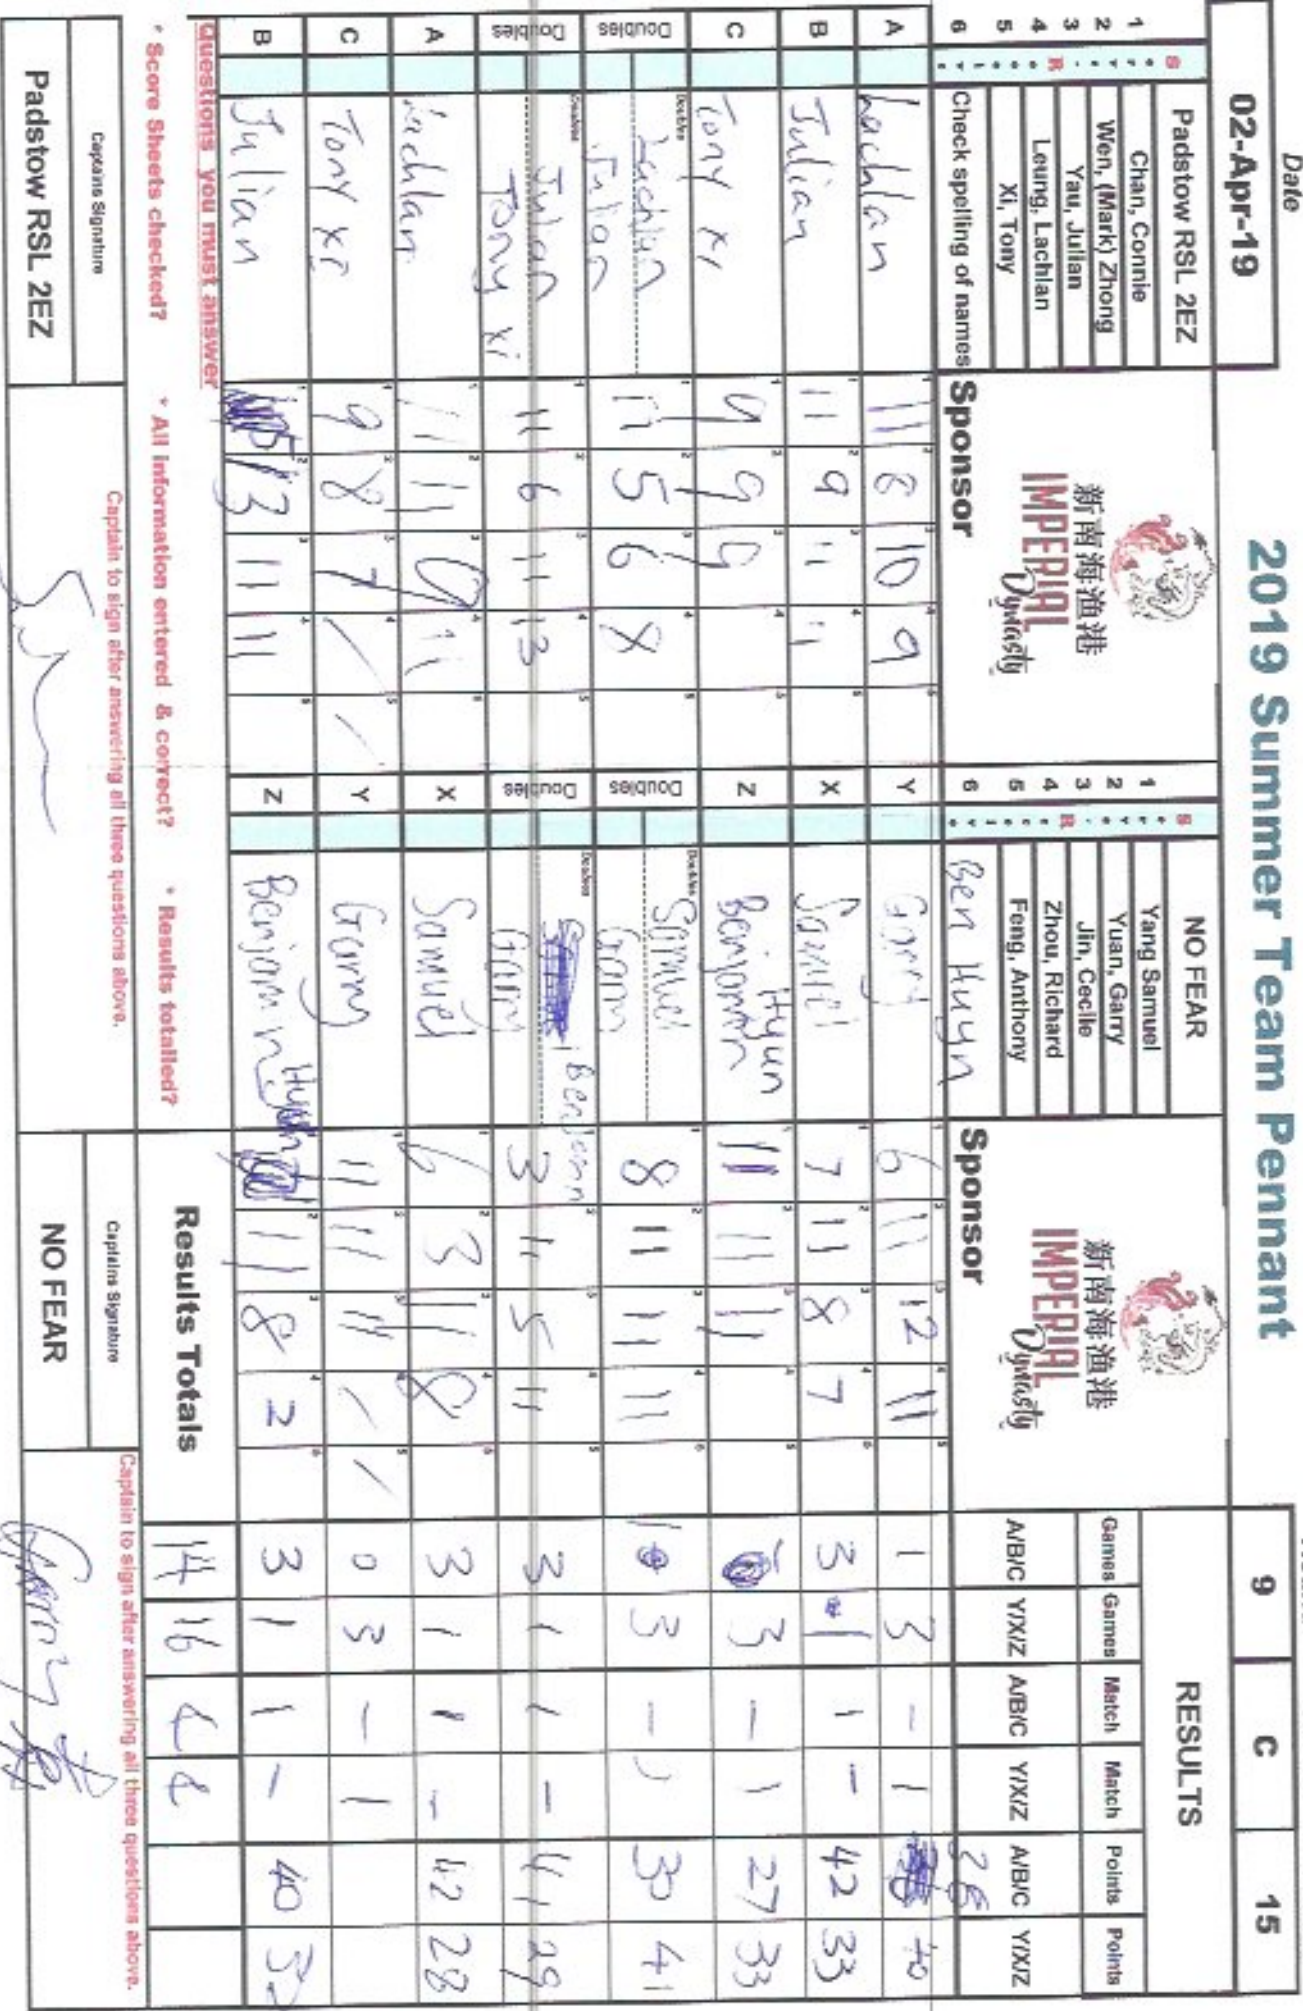 Date
2019 Summer Team Pennant
02-Apr-19
9 C 15
Padstow RSL 2EZ
1 Chan, Connie
2 Wen, (Mark) Zhong
3 Yau, Julian
4 Leung, Lachlan
5 Xi, Tony
6 Check spelling of names
新南海渔港
IMPERIAL
Dynasty
Sponsor
NO FEAR
1 Yang Samuel
2 Yuan, Garry
3 Jin, Cecile
4 Zhou, Richard
5 Feng, Anthony
6 Ben Huyn
新南海渔港
IMPERIAL
Dynasty
Sponsor
RESULTS
Games Games Match Match Points Points
A/B/C Y/X/Z A/B/C Y/X/Z A/B/C Y/X/Z
A Lachlan 11 8 10 9 Y Garry 6 11 12 11 1 3 - 1 38 40
B Julian 11 9 11 11 X Samuel 7 11 8 7 3 1 1 - 42 33
C Tony Xi 9 9 9 Z Benjamin Hyun 11 11 11 3 - 1 27 33
Doubles Lachlan Julian 11 5 6 8 Doubles Samuel Garry 8 11 11 11 1 3 - 1 30 41
Doubles Julian Tony Xi 11 6 11 13 Doubles Benjamin Garry 3 11 5 11 3 1 1 - 41 29
A Lachlan 11 11 9 11 X Samuel 6 3 11 8 3 1 1 - 42 28
C Tony Xi 9 8 7 / / Y Garry 11 11 11 / / 0 3 - 1
B Julian 13 11 11 Z Benjamin 11 8 2 3 1 1 - 40
Questions you must answer
* Score Sheets checked? * All information entered & correct? * Results totalled?
Results Totals 14 16
Captains Signature
Captain to sign after answering all three questions above.
Captains Signature
Captain to sign after answering all three questions above.
Padstow RSL 2EZ
NO FEAR